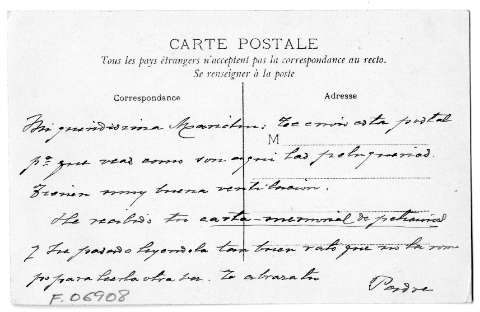 CARTE POSTALE
Tous les pays étrangers n'acceptent pas la correspondance au recto.
Se renseigner à la poste
Correspondance
Adresse
M
Mi queridísima : Te envio esta postal
pª que veas como son aqui las peluquerias.
Tienen muy buena ventilacion.
He recibido tu carta-memorial de
y he pasado leyendola tan buen rato que no la rom
po para leerla otra vez. Te abraza tu
Padre
F. 06908